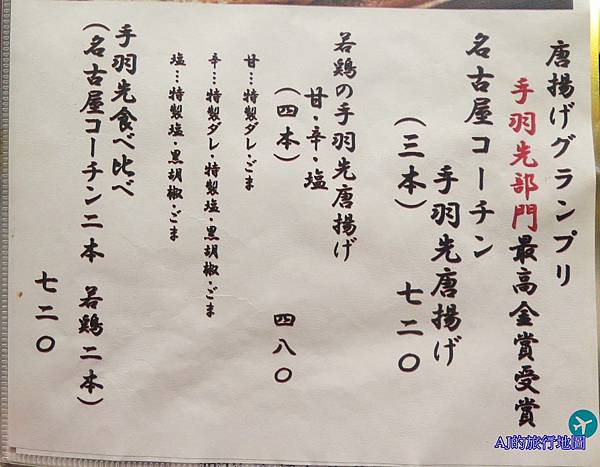 唐揚げグランプリ
手羽先部門最高金賞受賞
名古屋コーチン
手羽先唐揚げ
(三本) 七二〇
若鶏の手羽先唐揚げ
甘・辛・塩
(四本) 四八〇
甘…特製ダレ・ごま
辛…特製ダレ・特製塩・黒胡椒・ごま
塩…特製塩・黒胡椒・ごま
手羽先食べ比べ
(名古屋コーチン二本 若鶏二本)
七二〇
AJ的旅行地圖